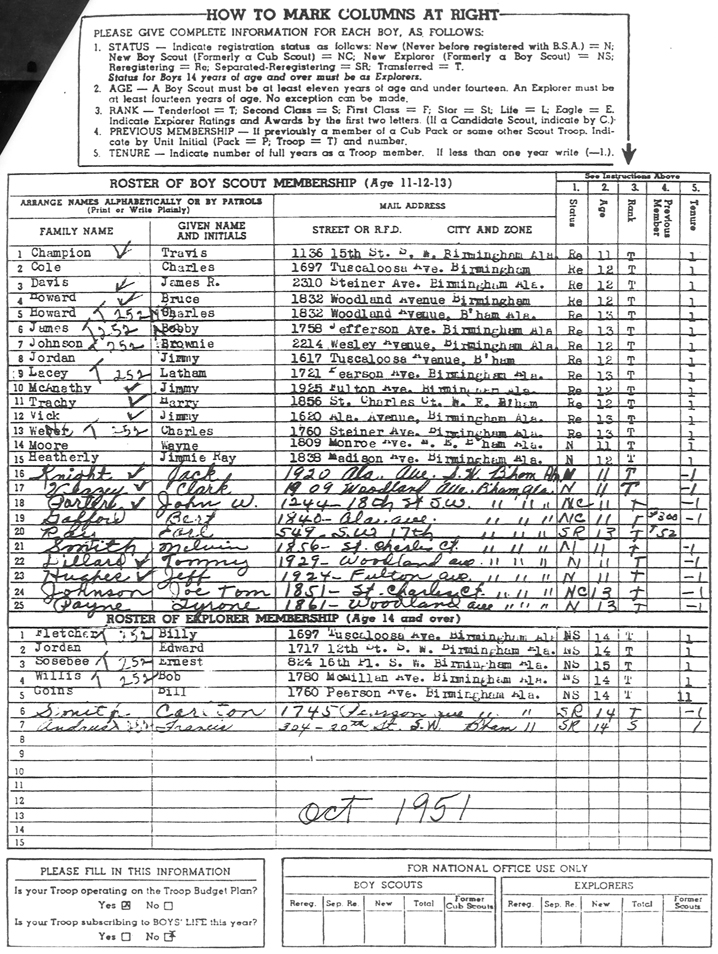 HOW TO MARK COLUMNS AT RIGHT
PLEASE GIVE COMPLETE INFORMATION FOR EACH BOY, AS FOLLOWS:
1. STATUS — Indicate registration status as follows: New (Never before registered with B.S.A.) = N;
New Boy Scout (Formerly a Cub Scout) = NC; New Explorer (Formerly a Boy Scout) = NS;
Reregistering = Re; Separated-Reregistering = SR; Transferred = T.
Status for Boys 14 years of age and over must be as Explorers.
2. AGE — A Boy Scout must be at least eleven years of age and under fourteen. An Explorer must be
at least fourteen years of age. No exception can be made.
3. RANK — Tenderfoot = T; Second Class = S; First Class = F; Star = St; Life = L; Eagle = E.
Indicate Explorer Ratings and Awards by the first two letters. (If a Candidate Scout, indicate by C.)
4. PREVIOUS MEMBERSHIP — If previously a member of a Cub Pack or some other Scout Troop. Indi-
cate by Unit Initial (Pack = P; Troop = T) and number.
5. TENURE — Indicate number of full years as a Troop member. If less than one year write (—1.).
ROSTER OF BOY SCOUT MEMBERSHIP (Age 11-12-13) See Instructions Above
ARRANGE NAMES ALPHABETICALLY OR BY PATROLS MAIL ADDRESS 1. 2. 3. 4. 5.
(Print or Write Plainly) Status Age Rank Previous Member Tenure
FAMILY NAME GIVEN NAME AND INITIALS STREET OR R.F.D. CITY AND ZONE
1 Champion Travis 1136 15th St. S. W. Birmingham Ala. Re 11 T 1
2 Cole Charles 1697 Tuscaloosa Ave. Birmingham Re 12 T 1
3 Davis James R. 2310 Steiner Ave. Birmingham Ala. Re 12 T 1
4 Howard Bruce 1832 Woodland Avenue Birmingham Re 12 T 1
5 Howard 252 Charles 1832 Woodland Avenue, B'ham Ala. Re 13 T 1
6 James 252 Bobby 1758 Jefferson Ave. Birmingham Ala Re 13 T 1
7 Johnson 252 Brownie 2214 Wesley Avenue, Birmingham Ala. Re 12 T 1
8 Jordan Jimmy 1617 Tuscaloosa Avenue, B'ham Re 12 T 1
9 Lacey 252 Latham 1721 Pearson Ave. Birmingham Ala. Re 13 T 1
10 McAnathy Jimmy 1925 Fulton Ave. Birmingham Ala. Re 11 T 1
11 Trachy Harry 1856 St. Charles Ct. W. E. B'ham Re 12 T 1
12 Vick Jimmy 1620 Ala. Avenue, Birmingham Ala. Re 12 T 1
13 Weber 252 Charles 1760 Steiner Ave. Birmingham Ala. Re 13 T 1
14 Moore Wayne 1809 Monroe Ave. W. E. B'ham Ala. N 11 T 1
15 Heatherly Jimmie Ray 1838 Madison Ave. Birmingham Ala. N 12 T 1
16 Knight Jack 1920 Ala. Ave. S.W. B'ham Ala N 11 T -1
17 Clark 1909 Woodland Ave. Bham Ala. N 11 T -1
18 John W. 1244 - 18th St S.W. " " " NC 11 T -1
19 Gafford Bert 1840 - Ala. ave. " " " NC 11 T P300 -1
20 Ray Earl 549 - S.W. 17th " " " SR 13 T T52 -1
21 Smith Melvin 1856 - St. Charles Ct. " " " N 11 T -1
22 Lillard Tommy 1929 - Woodland ave " " " N 11 T -1
23 Hughes Jeff 1924 - Fulton ave " " " N 11 T -1
24 Johnson Joe Tom 1851 - St. Charles Ct. " " " NC 13 T -1
25 Payne Tyrone 1861 - Woodland ave " " " N 13 T -1
ROSTER OF EXPLORER MEMBERSHIP (Age 14 and over)
1 Fletcher 252 Billy 1697 Tuscaloosa Ave. Birmingham Ala NS 14 T 1
2 Jordan Edward 1717 12th St. S. W. Birmingham Ala. NS 14 T 1
3 Sosebee 252 Ernest 824 16th Pl. S. W. Birmingham Ala. NS 15 T 1
4 Willis 252 Bob 1780 McMillan Ave. Birmingham Ala. NS 14 T 1
5 Goins Bill 1760 Peerson Ave. Birmingham Ala. NS 14 T 11
6 Smith Carlton 1745 Pearson ave " " SR 14 T -1
7 Andrus Francis 304 - 20th St. S.W. Bham " SR 14 S 1
8
9
10
11
12
13 Oct 1951
14
15
PLEASE FILL IN THIS INFORMATION
Is your Troop operating on the Troop Budget Plan?
Yes ☒ No ☐
Is your Troop subscribing to BOYS' LIFE this year?
Yes ☐ No ☒
FOR NATIONAL OFFICE USE ONLY
BOY SCOUTS EXPLORERS
Rereg. Sep. Re. New Total Former Cub Scouts Rereg. Sep. Re. New Total Former Scouts